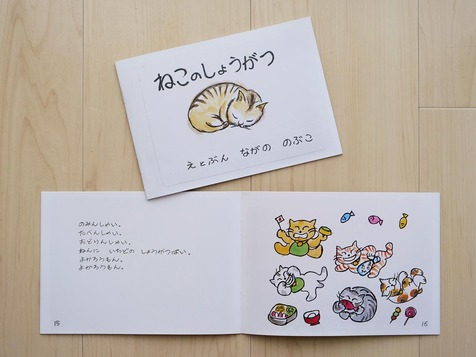 ねこのしょうがつ
えとぶん ながの のぶこ
のみんしゃい。
たべんしゃい。
おどりんしゃい。
ねんに いちどの しょうがつばい。
よかろうもん。
よかろうもん。
15
16